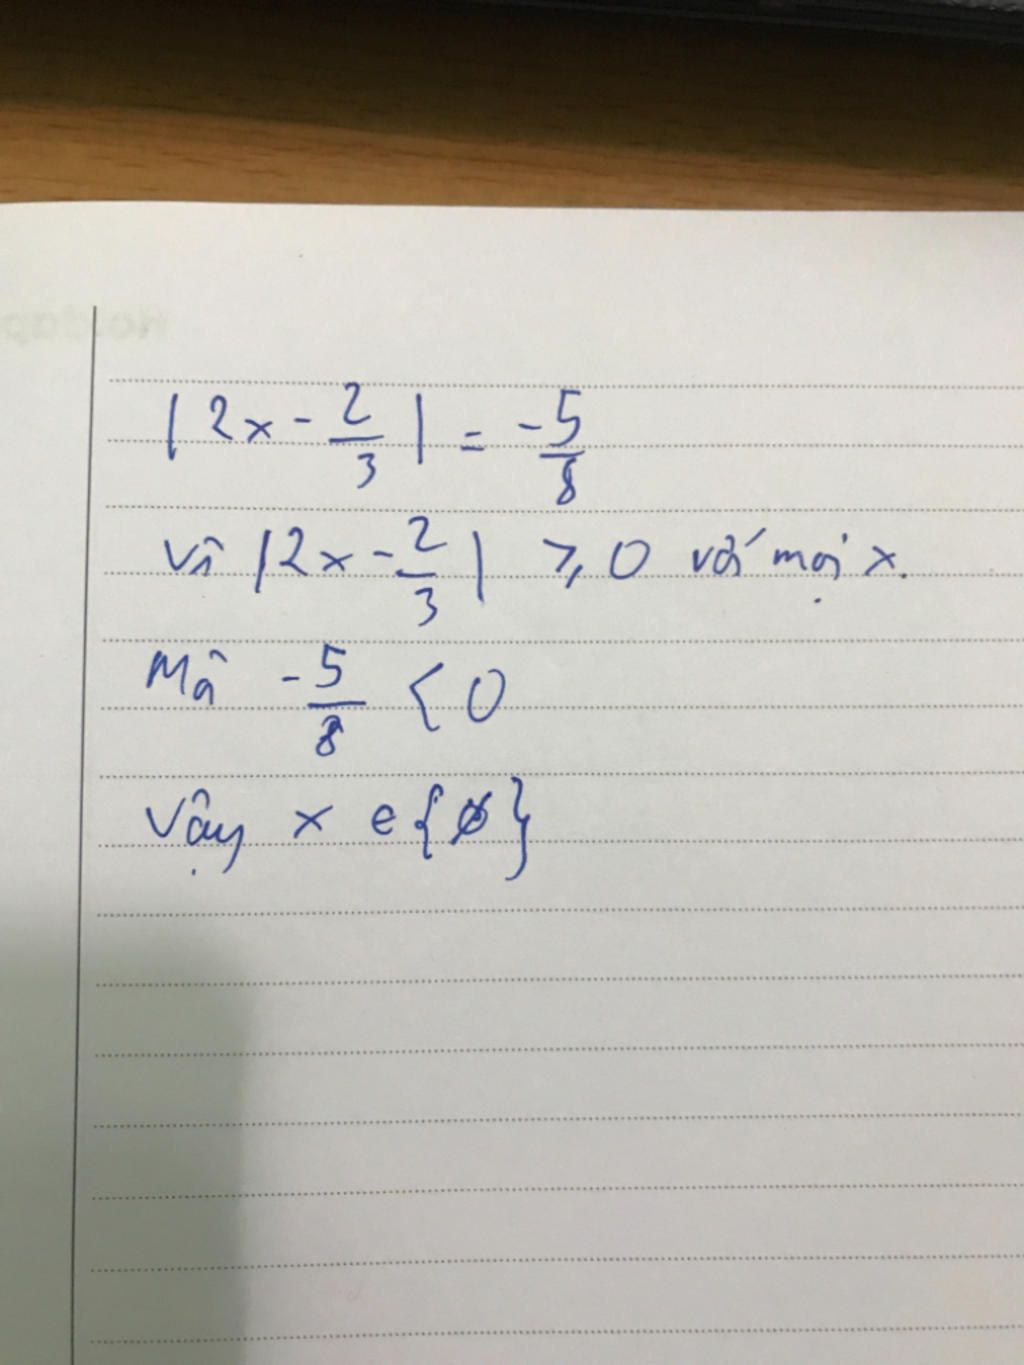 |2x - 2/3| = -5/8
Vì |2x - 2/3| ⩾ 0 với mọi x.
Mà -5/8 < 0
Vậy x ∈ {∅}